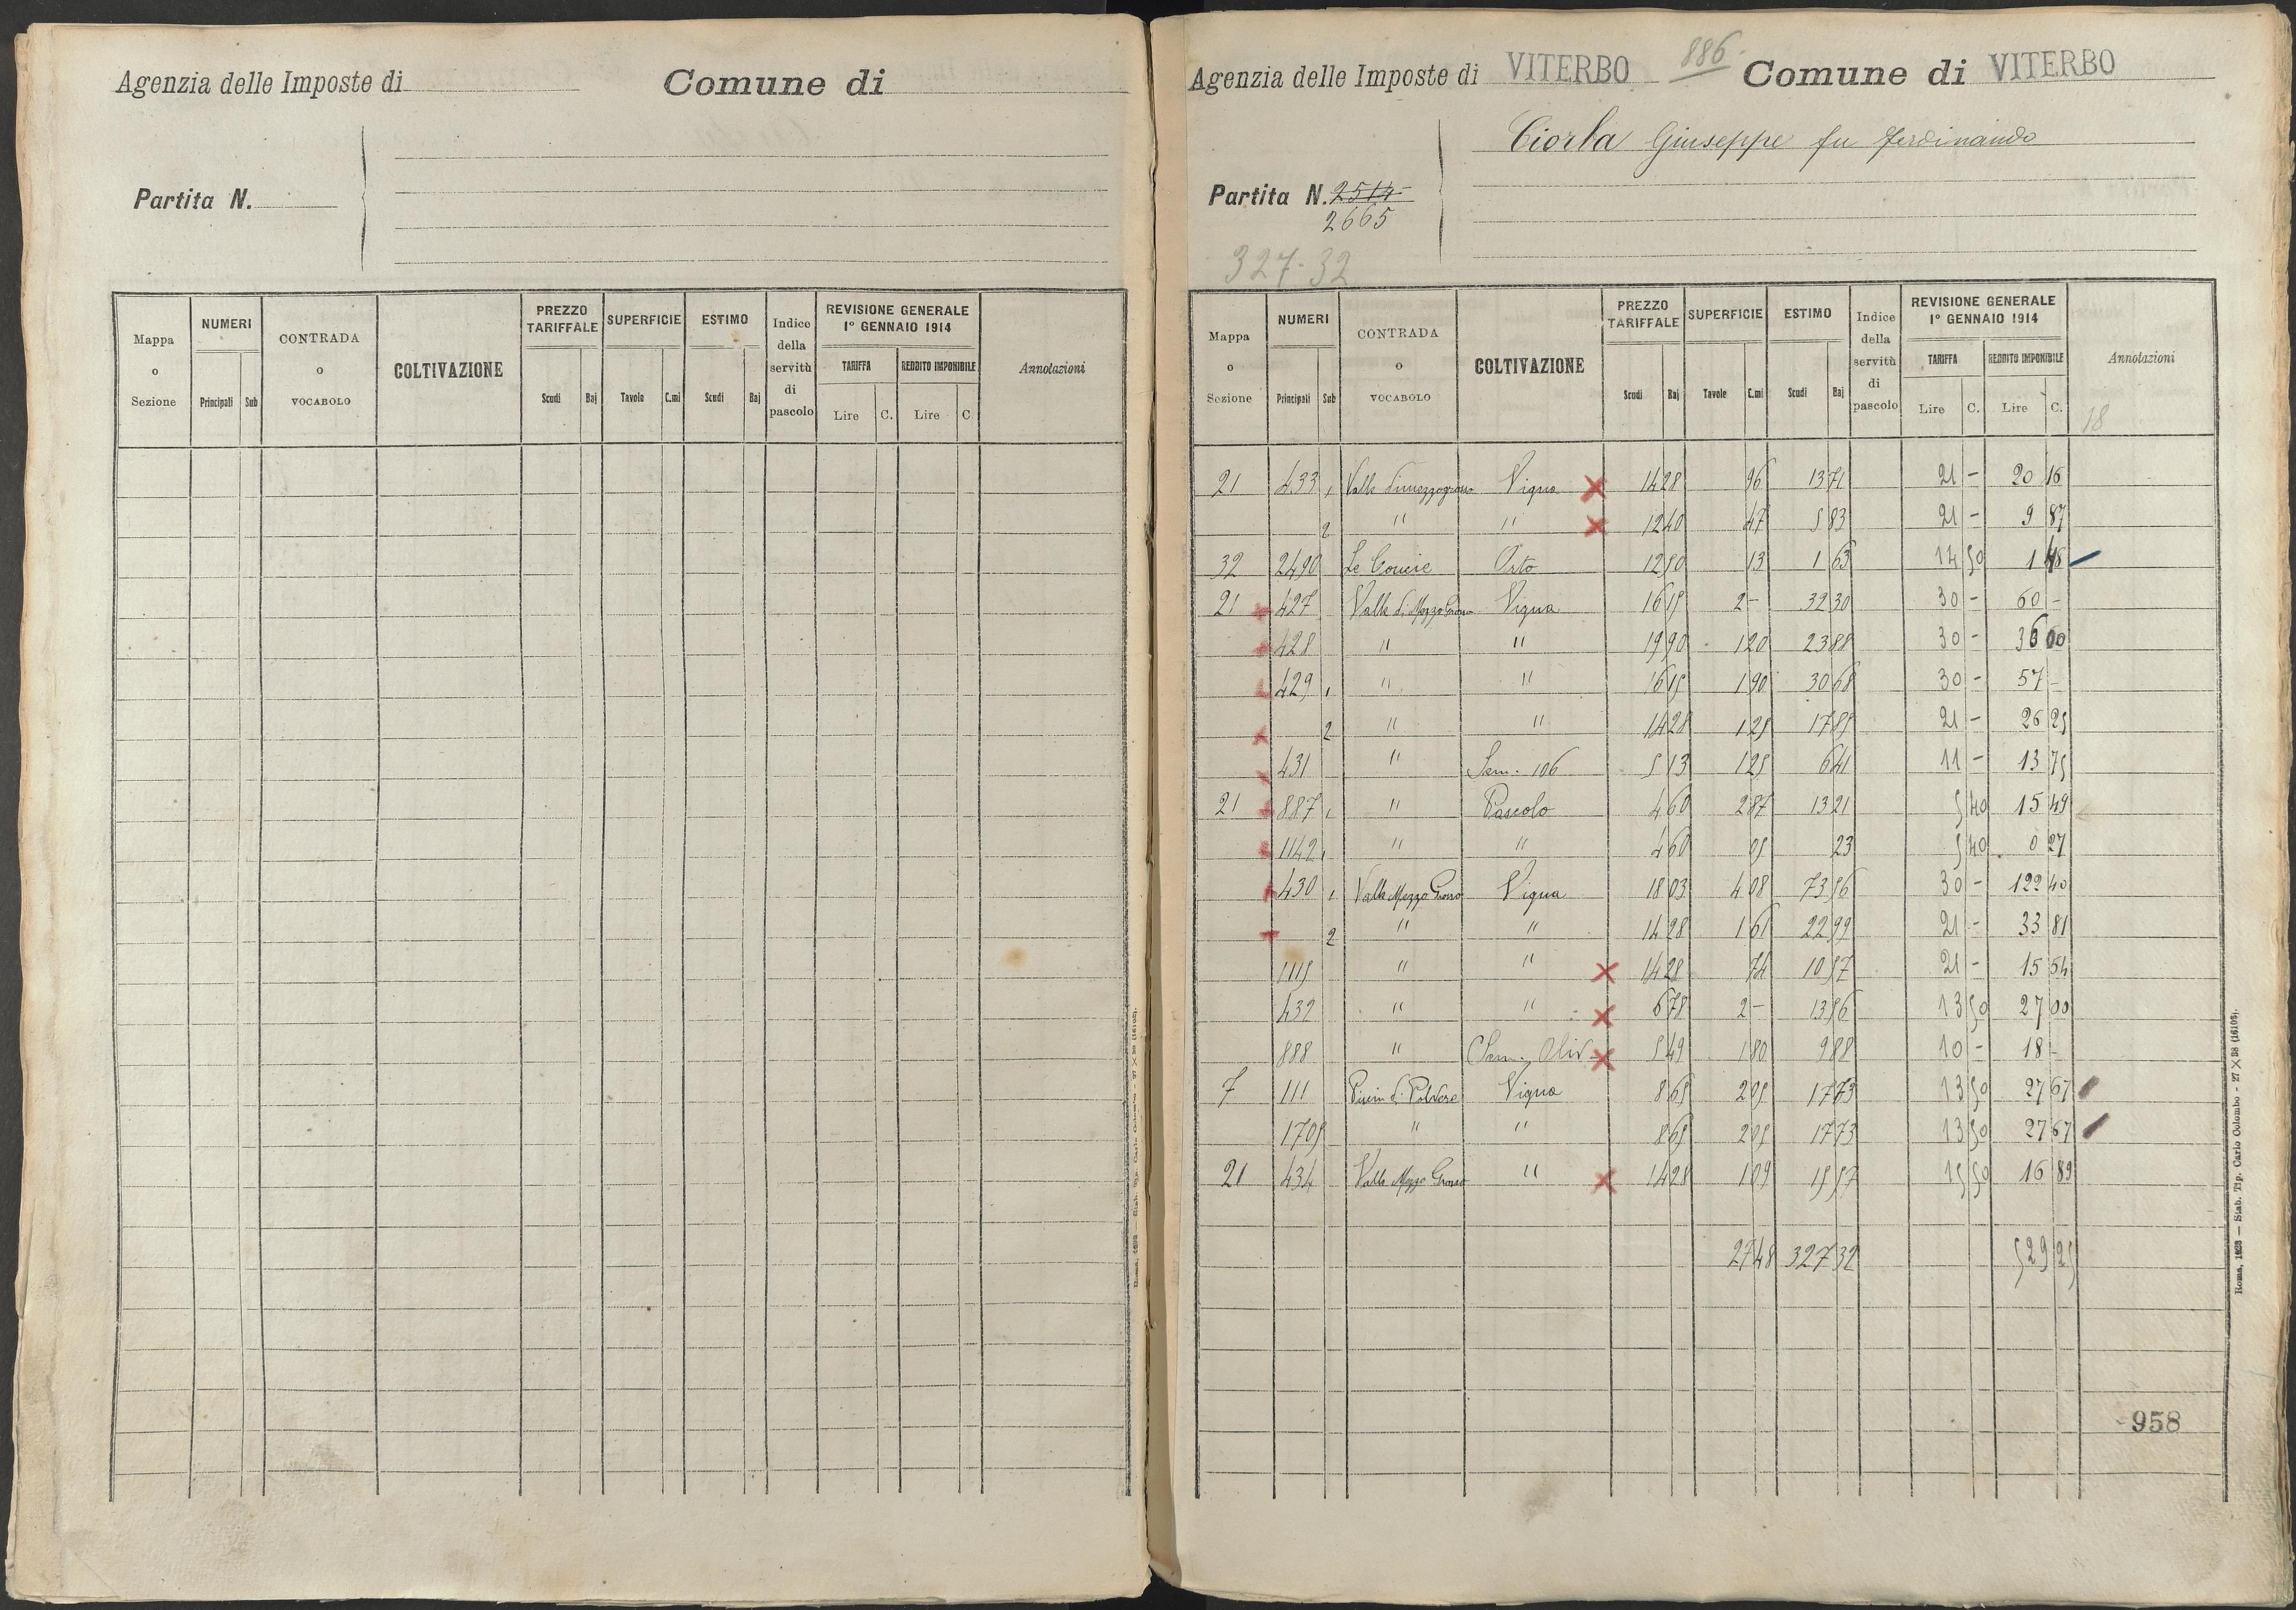 Agenzia delle Imposte di Comune di
Partita N.
Mappa o Sezione NUMERI Principali Sub CONTRADA o VOCABOLO COLTIVAZIONE PREZZO TARIFFALE Scudi Baj SUPERFICIE Tavole C.mi ESTIMO Scudi Baj Indice della servitù di pascolo REVISIONE GENERALE 1° GENNAIO 1914 TARIFFA Lire C. REDDITO IMPONIBILE Lire C. Annotazioni
Agenzia delle Imposte di VITERBO 886 Comune di VITERBO
Ciorba Giuseppe fu Ferdinando
Partita N. 2514
2665
327-32
Mappa o Sezione NUMERI Principali Sub CONTRADA o VOCABOLO COLTIVAZIONE PREZZO TARIFFALE Scudi Baj SUPERFICIE Tavole C.mi ESTIMO Scudi Baj Indice della servitù di pascolo REVISIONE GENERALE 1° GENNAIO 1914 TARIFFA Lire C. REDDITO IMPONIBILE Lire C. Annotazioni
18
21 433 1 Valle Vigna 14 28 96 13 71 21 - 20 16
2 " " 12 40 47 5 83 21 - 9 87
32 2490 Le Orto 12 50 13 1 63 14 50 1 48
21 427 Valle di Mezzo Grosso Vigna 16 15 2 - 32 30 30 - 60 -
428 " " 19 90 1 20 23 88 30 - 36 00
429 1 " " 16 15 1 90 30 68 30 - 57 -
2 " " 14 28 1 25 17 85 21 - 26 25
431 " Sem. 106 5 13 1 25 6 41 11 - 13 75
21 887 1 " Pascolo 4 60 2 87 13 21 5 40 15 49
1142 1 " " 4 60 05 23 5 40 0 27
430 1 Valle Mezzo Grosso Vigna 18 03 4 08 73 56 30 - 122 40
2 " " 14 28 1 61 22 99 21 - 33 81
1115 " " 14 28 74 10 57 21 - 15 54
432 " " 6 78 2 - 13 56 13 50 27 00
888 " Sem. Oliv. 5 49 1 80 9 88 10 - 18 -
7 111 Vigna 8 65 2 05 17 73 13 50 27 67
1705 " " 8 65 2 05 17 73 13 50 27 67
21 434 Valle Mezzo Grosso " 14 28 1 09 15 57 15 50 16 89
27 48 327 32 529 25
958
Roma, 1923 — Stab. Tip. Carlo Colombo - 27 × 38 (16105).